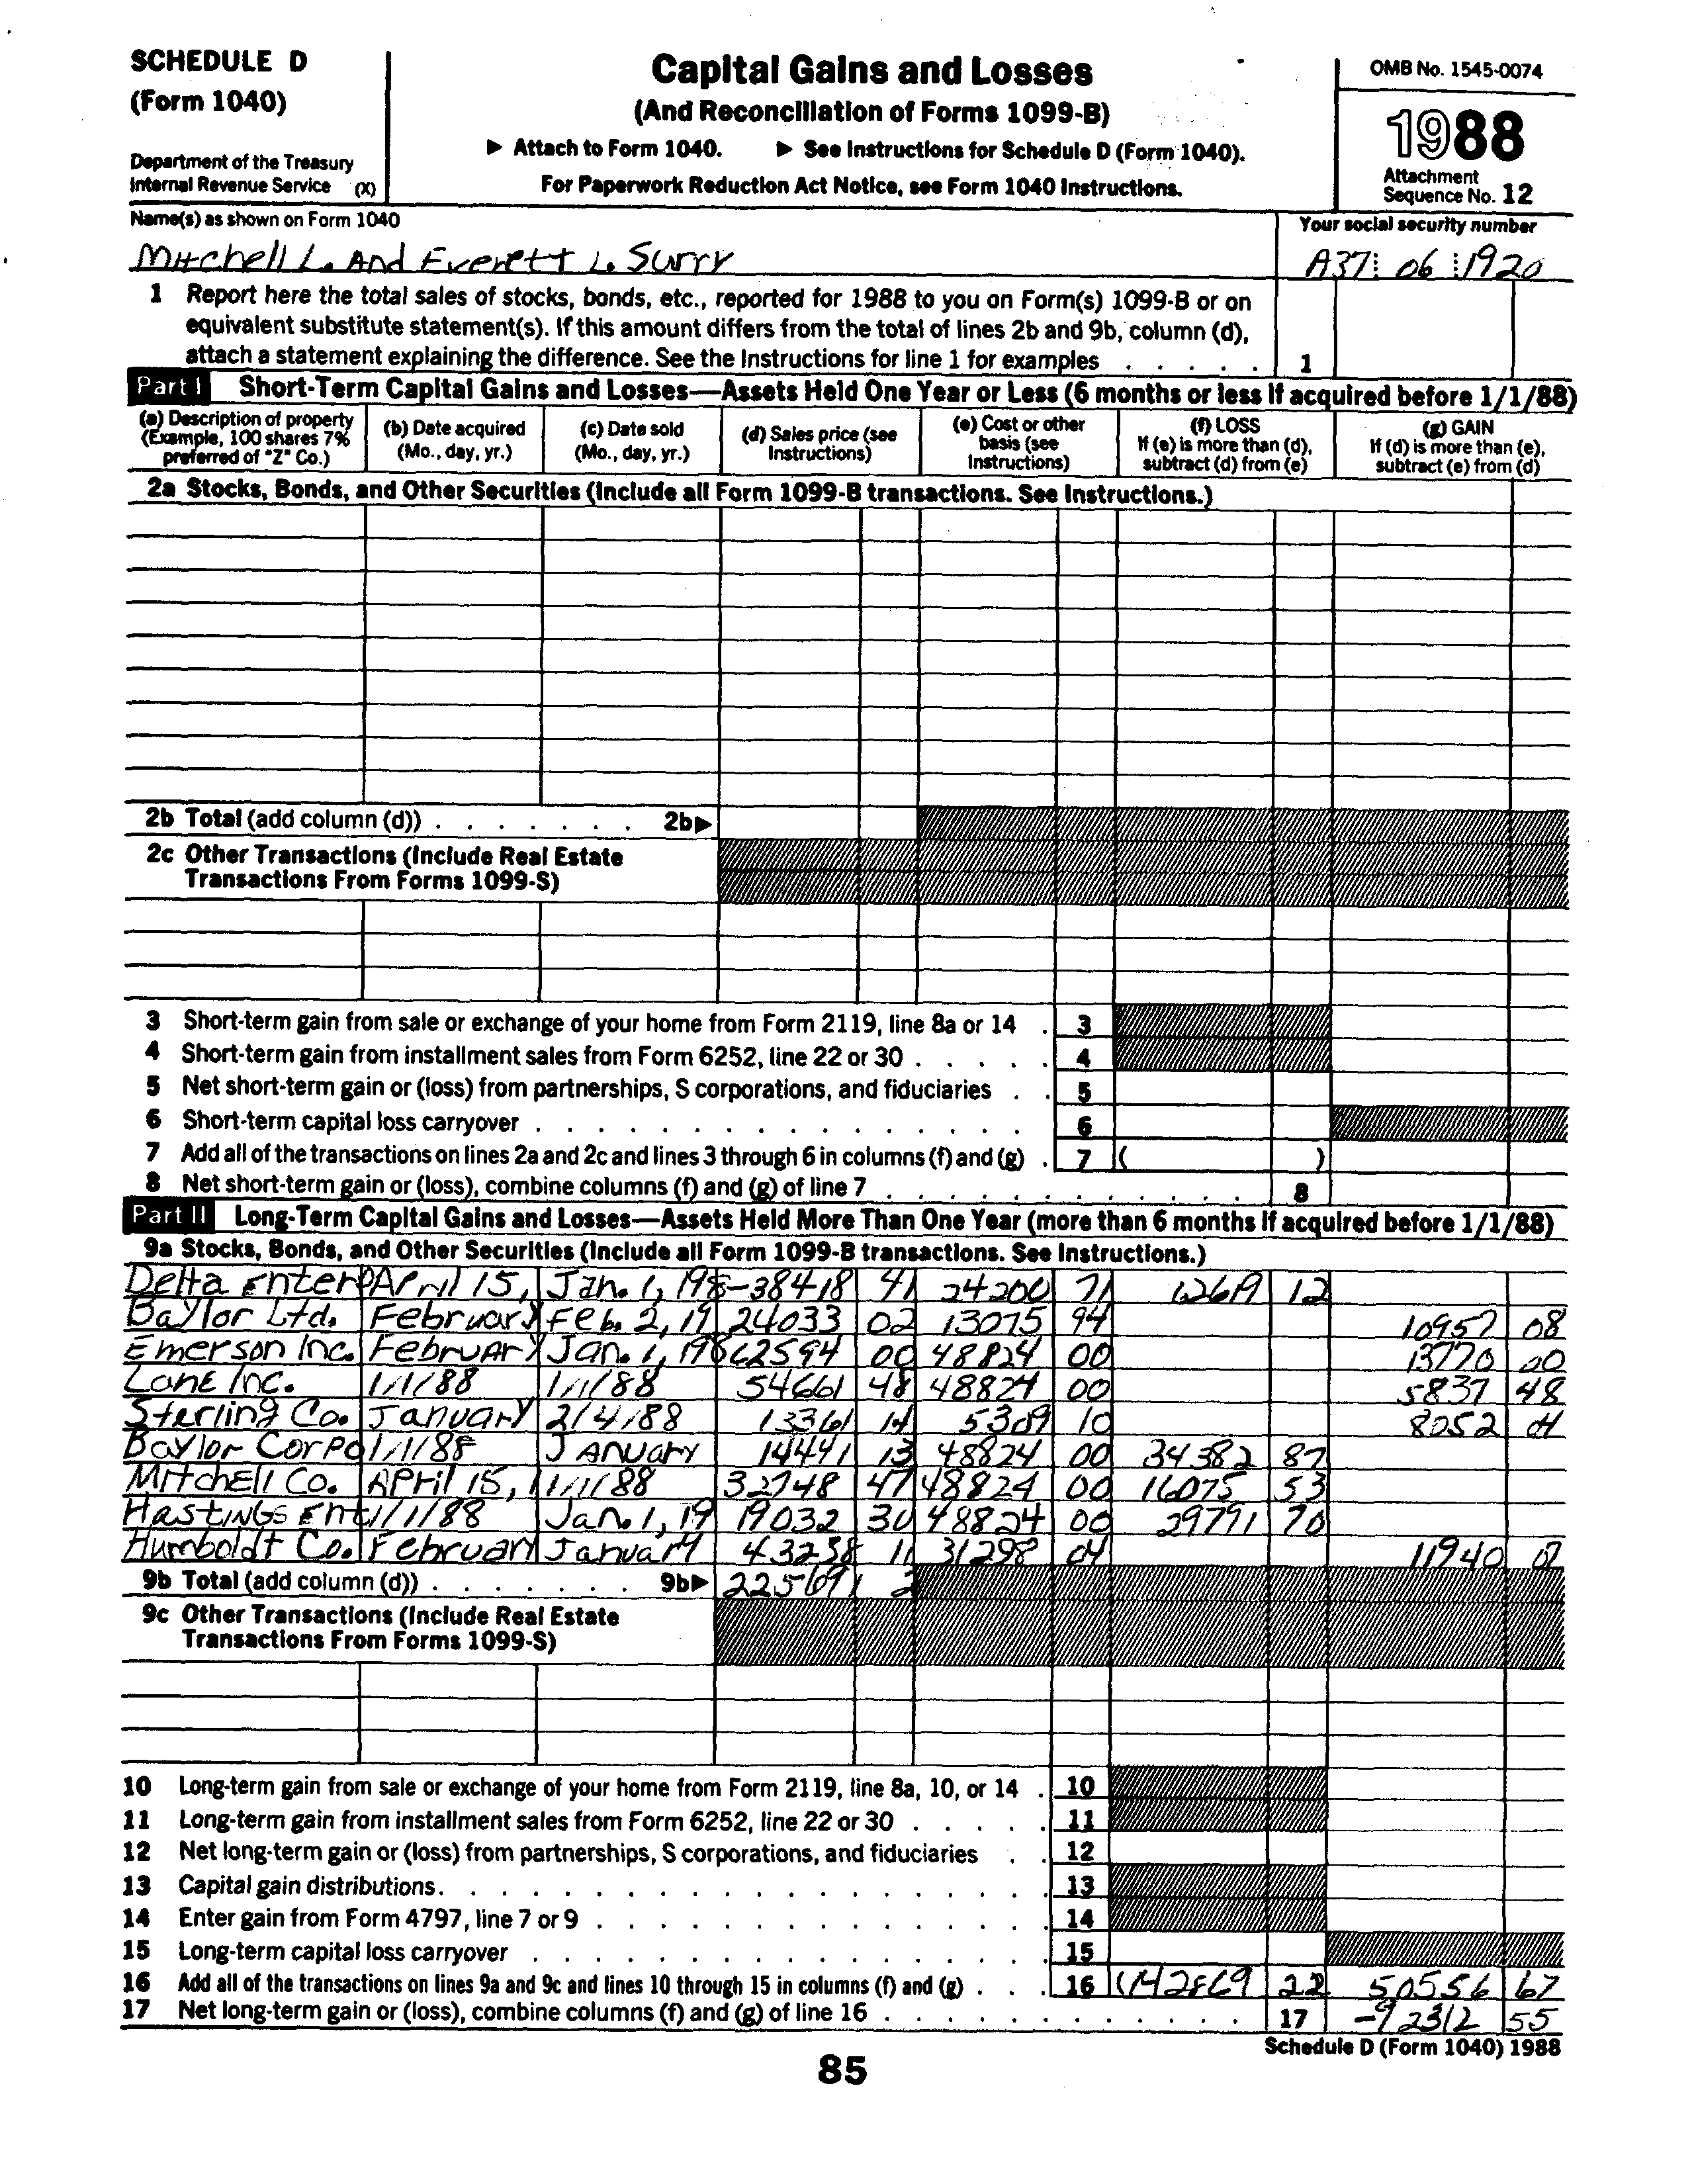 SCHEDULE D
(Form 1040)
Department of the Treasury
Internal Revenue Service (X)
Capital Gains and Losses
(And Reconciliation of Forms 1099-B)
▶ Attach to Form 1040. ▶ See Instructions for Schedule D (Form 1040).
For Paperwork Reduction Act Notice, see Form 1040 Instructions.
OMB No. 1545-0074
1988
Attachment
Sequence No. 12
Name(s) as shown on Form 1040
Your social security number
Mitchell L. And Everett L. Surry
A37 06 1920
1 Report here the total sales of stocks, bonds, etc., reported for 1988 to you on Form(s) 1099-B or on
equivalent substitute statement(s). If this amount differs from the total of lines 2b and 9b, column (d),
attach a statement explaining the difference. See the Instructions for line 1 for examples . . . . . 1
Part I Short-Term Capital Gains and Losses—Assets Held One Year or Less (6 months or less if acquired before 1/1/88)
(a) Description of property (Example, 100 shares 7% preferred of "Z" Co.)
(b) Date acquired (Mo., day, yr.)
(c) Date sold (Mo., day, yr.)
(d) Sales price (see Instructions)
(e) Cost or other basis (see Instructions)
(f) LOSS If (e) is more than (d), subtract (d) from (e)
(g) GAIN If (d) is more than (e), subtract (e) from (d)
2a Stocks, Bonds, and Other Securities (Include all Form 1099-B transactions. See Instructions.)
2b Total (add column (d)) . . . . . . . 2b▶
2c Other Transactions (Include Real Estate
Transactions From Forms 1099-S)
3 Short-term gain from sale or exchange of your home from Form 2119, line 8a or 14 . 3
4 Short-term gain from installment sales from Form 6252, line 22 or 30 . . . . . 4
5 Net short-term gain or (loss) from partnerships, S corporations, and fiduciaries . . 5
6 Short-term capital loss carryover . . . . . . . . . . . . . . . . 6
7 Add all of the transactions on lines 2a and 2c and lines 3 through 6 in columns (f) and (g) . 7 ( )
8 Net short-term gain or (loss), combine columns (f) and (g) of line 7 . . . . . . . . . . . . 8
Part II Long-Term Capital Gains and Losses—Assets Held More Than One Year (more than 6 months if acquired before 1/1/88)
9a Stocks, Bonds, and Other Securities (Include all Form 1099-B transactions. See Instructions.)
Delta Enterp April 15, Jan. 1, 198 -38418 41 24200 71 12619 12
Baylor Ltd. February Feb. 2, 19 24033 02 13075 94 10957 08
Emerson Inc. February Jan. 1, 198 62594 00 48824 00 13770 00
Lane Inc. 1/1/88 1/1/88 54661 48 48824 00 5837 48
Sterling Co. January 2/4/88 13361 14 5309 10 8052 04
Baylor Corpo 1/1/88 January 14441 13 48824 00 34382 87
Mitchell Co. April 15, 1/1/88 32748 47 48824 00 16075 53
Hastings Ent 1/1/88 Jan. 1, 19 19032 30 48824 00 29791 70
Humboldt Co. February January 43238 11 31298 04 11940 07
9b Total (add column (d)) . . . . . . . 9b▶ 225691 2
9c Other Transactions (Include Real Estate
Transactions From Forms 1099-S)
10 Long-term gain from sale or exchange of your home from Form 2119, line 8a, 10, or 14 . 10
11 Long-term gain from installment sales from Form 6252, line 22 or 30 . . . . . 11
12 Net long-term gain or (loss) from partnerships, S corporations, and fiduciaries . . 12
13 Capital gain distributions. . . . . . . . . . . . . . . . . . 13
14 Enter gain from Form 4797, line 7 or 9 . . . . . . . . . . . . . 14
15 Long-term capital loss carryover . . . . . . . . . . . . . . . . 15
16 Add all of the transactions on lines 9a and 9c and lines 10 through 15 in columns (f) and (g) . . . 16 (142869 22 50556 67
17 Net long-term gain or (loss), combine columns (f) and (g) of line 16 . . . . . . . . . . . . 17 -92312 55
Schedule D (Form 1040) 1988
85